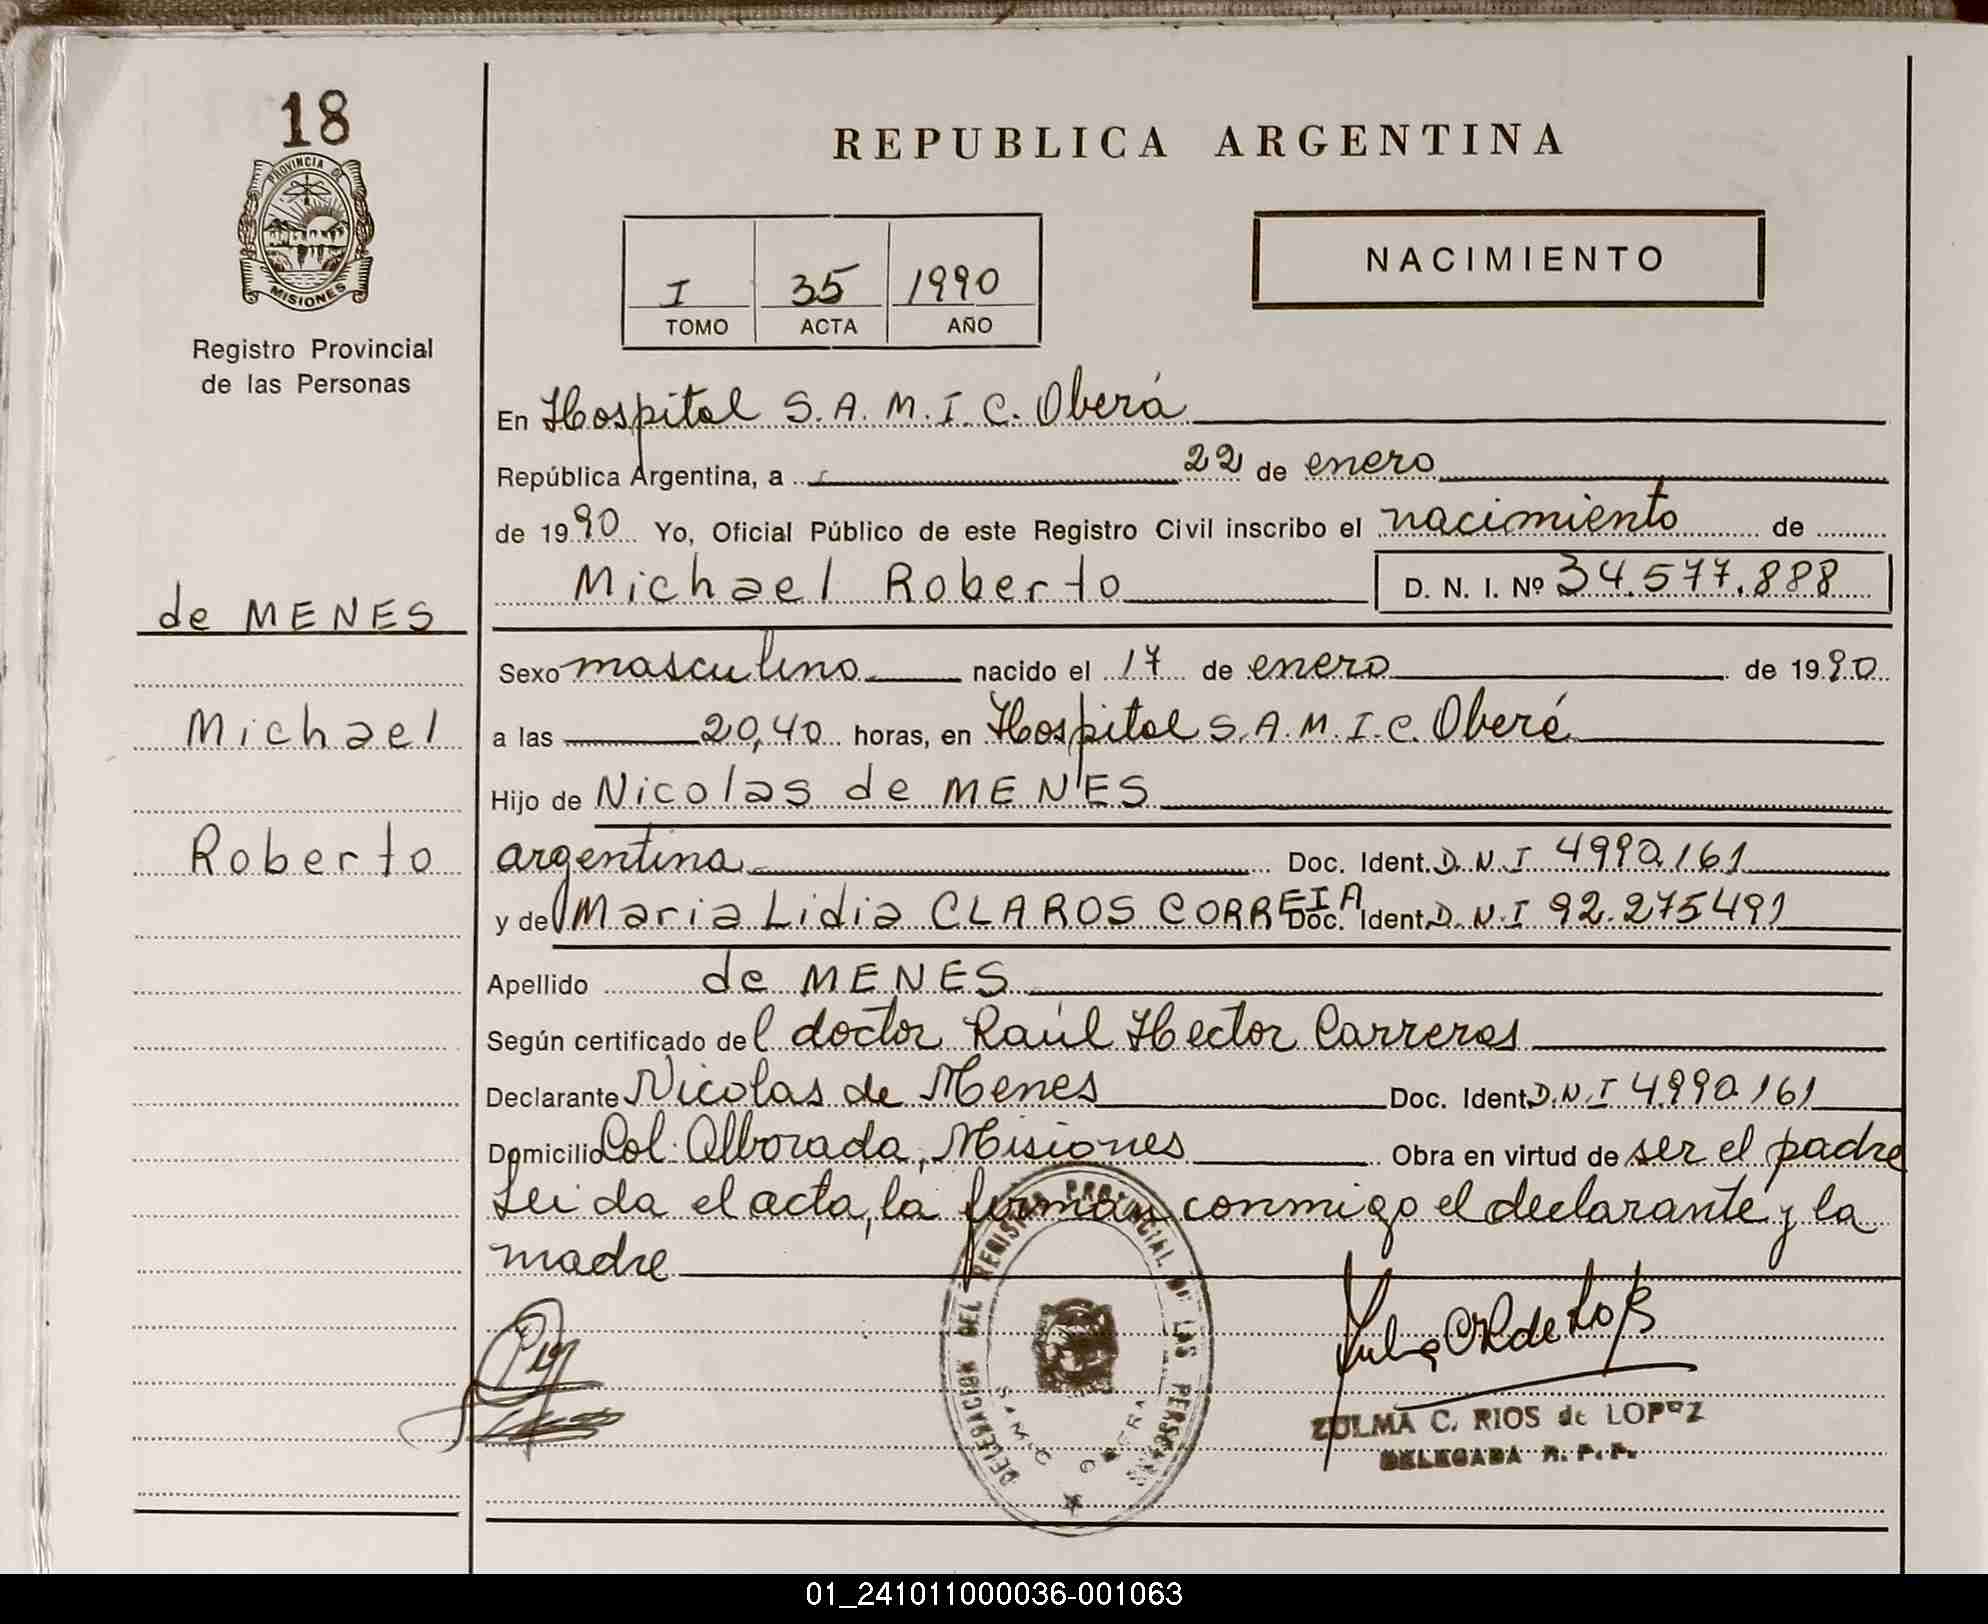 18
PROVINCIA DE
MISIONES
Registro Provincial
de las Personas
de MENES
Michael
Roberto
REPUBLICA ARGENTINA
NACIMIENTO
I 35 1990
TOMO ACTA AÑO
En Hospital S.A.M.I.C. Oberá
República Argentina, a 22 de enero
de 1990 Yo, Oficial Público de este Registro Civil inscribo el nacimiento de
Michael Roberto D. N. I. Nº 34.577.888
Sexo masculino nacido el 17 de enero de 1990
a las 20,40 horas, en Hospital S.A.M.I.C. Oberá
Hijo de Nicolas de MENES
argentina Doc. Ident. D.N.I 4990.161
y de Maria Lidia CLAROS CORREIA Doc. Ident. D.N.I 92.275491
Apellido de MENES
Según certificado del doctor Raúl Hector Carreras
Declarante Nicolas de Menes Doc. Ident. D.N.I 4.990.161
Domicilio Col. Alborada, Misiones Obra en virtud de ser el padre
Leida el acta, la firman conmigo el declarante y la
madre
DELEGACION DEL REGISTRO PROVINCIAL DE LAS PERSONAS
ZULMA C. RIOS de LOPEZ
DELEGADA R. P. P.
01_241011000036-001063